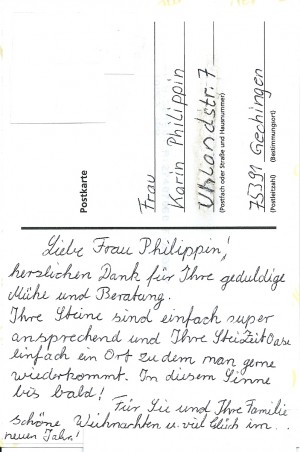 Postkarte
Frau
Karin Philippin
Uhlandstr. 7
(Postfach oder Straße und Hausnummer)
75391 Gechingen
(Postleitzahl) (Bestimmungsort)
Liebe Frau Philippin!
herzlichen Dank für Ihre geduldige
Mühe und Beratung.
Ihre Steine sind einfach super
ansprechend und Ihre SteiZeitOase
einfach ein Ort zu dem man gerne
wiederkommt. In diesem Sinne
bis bald!
Für Sie und Ihre Familie
schöne Weihnachten u. viel Glück im . .
neuen Jahr!